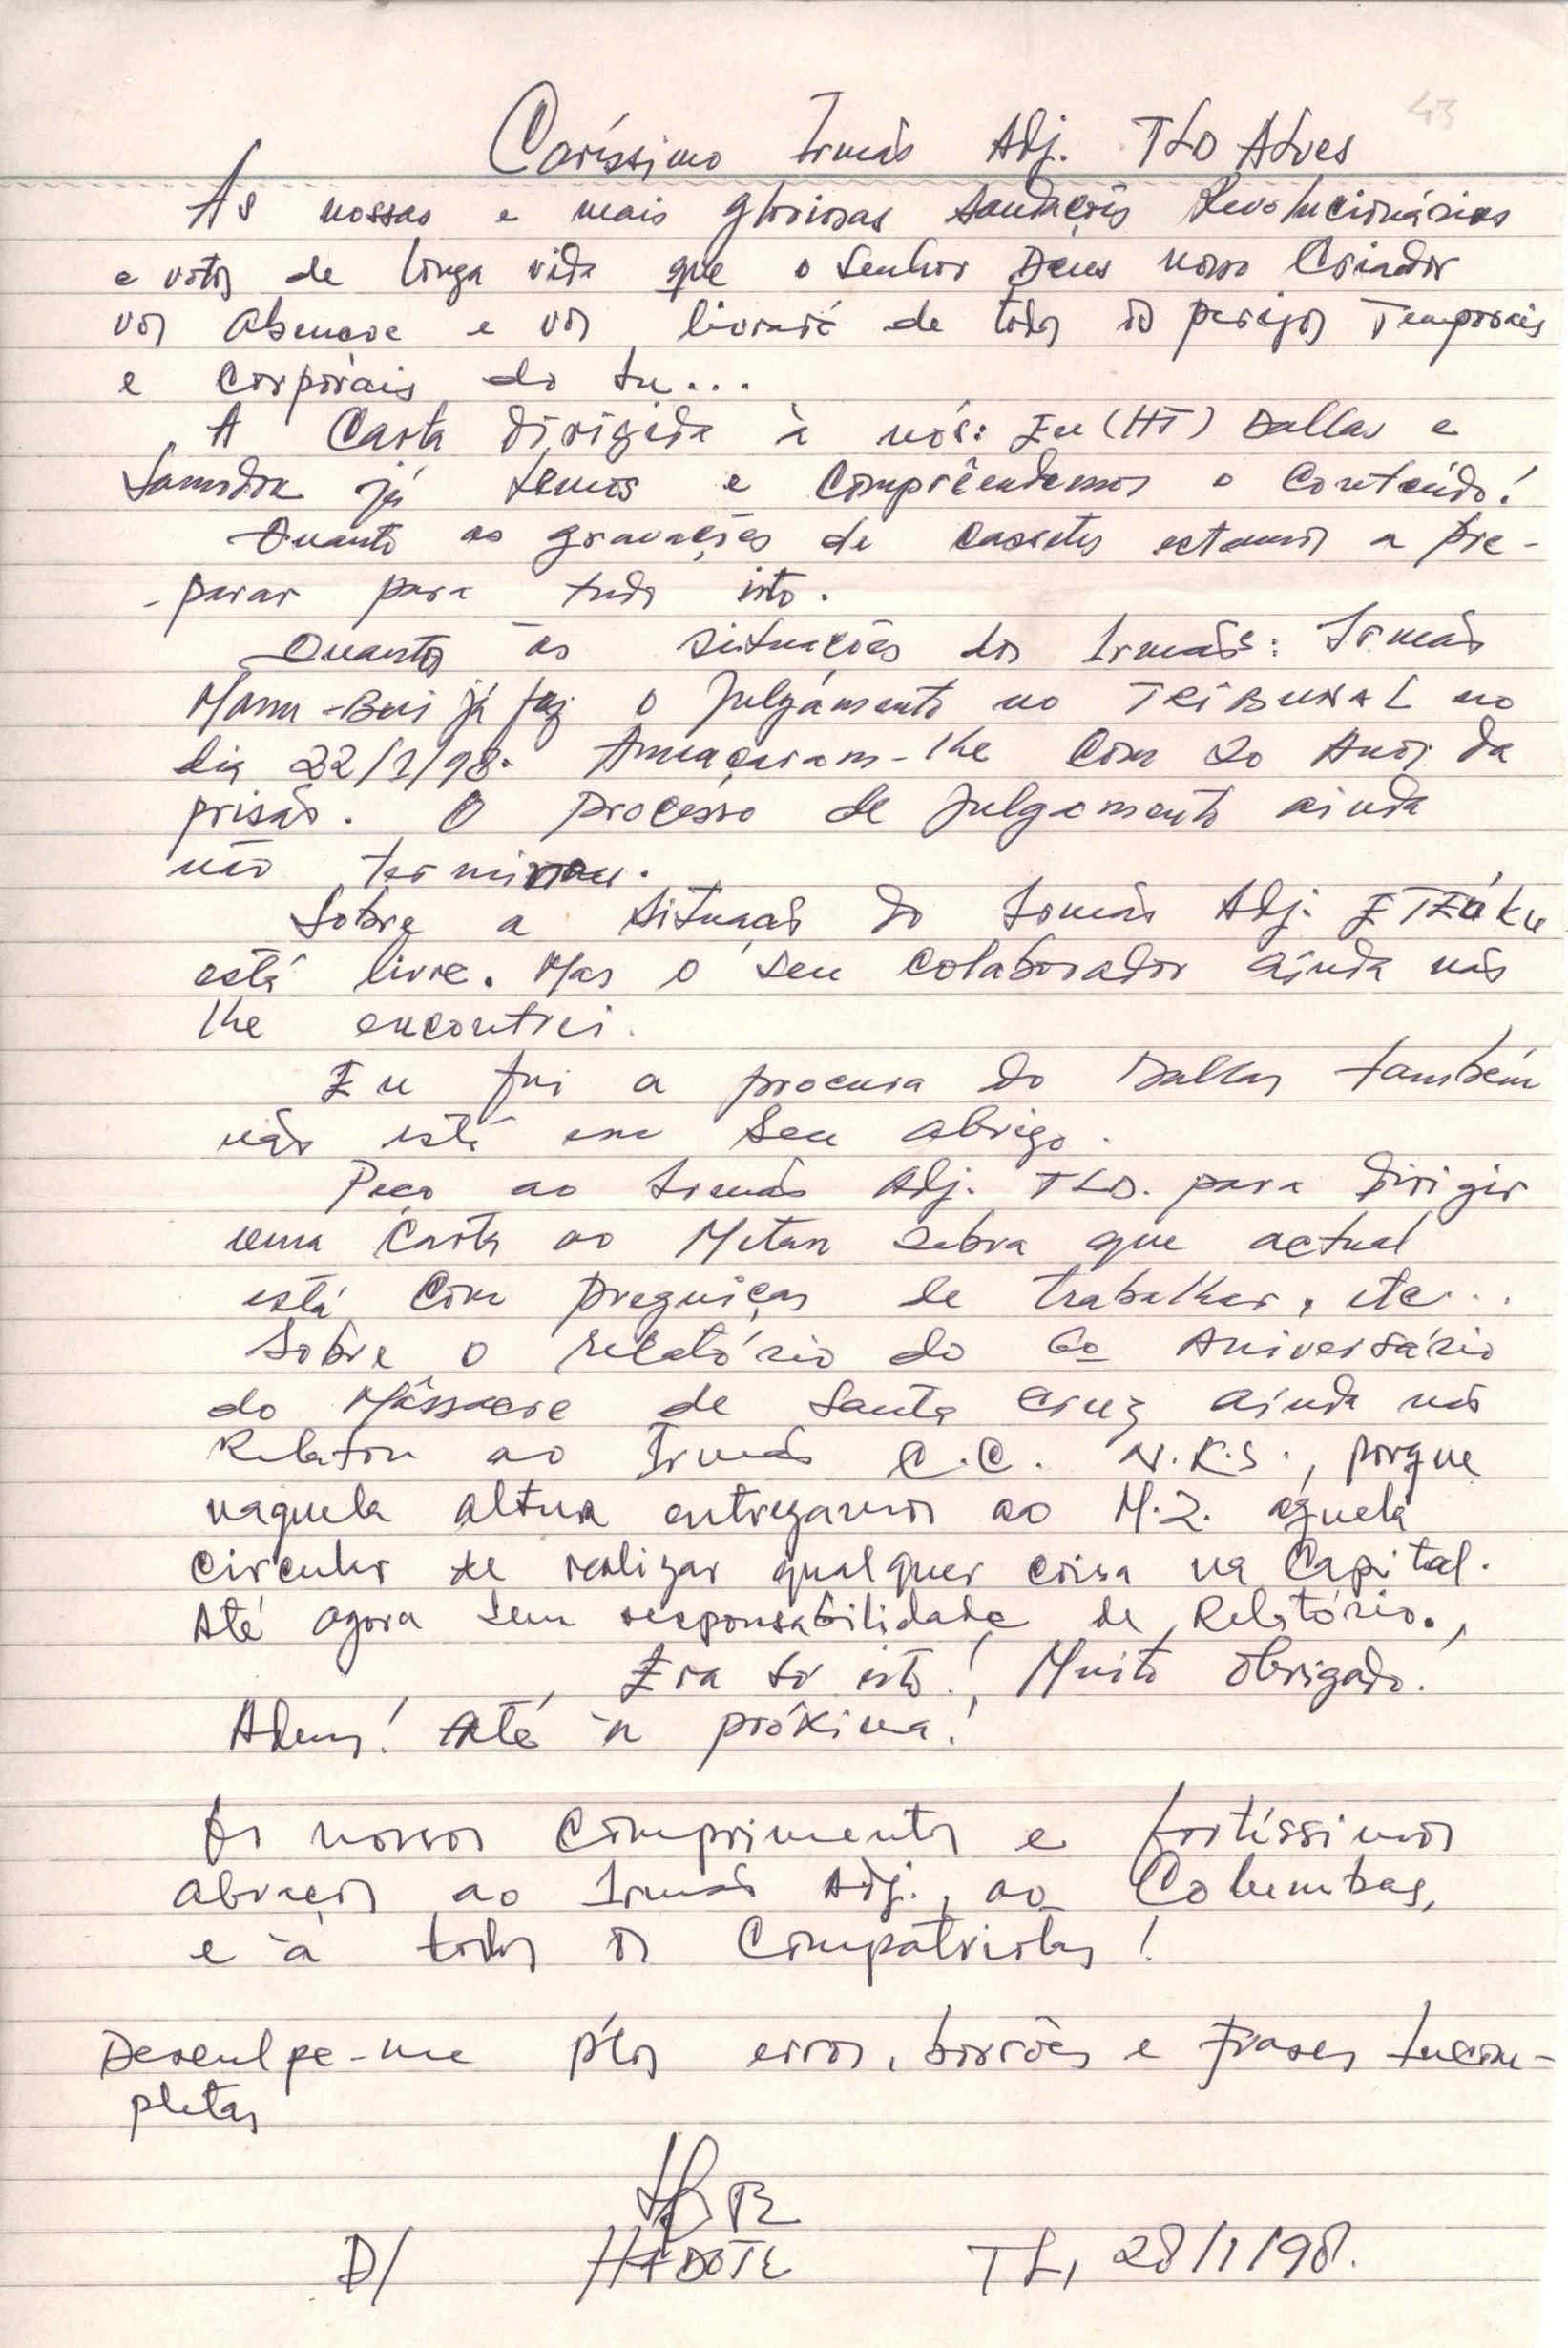 43
Caríssimo Irmão Adj. TLO Alves
As nossas e mais gloriosas saudações Revolucionárias
e votos de longa vida que o Senhor Deus nosso Criador
vos abençoe e vos livrará de todos os perigos Temporais
e Corporais do
A Carta dirigida à nós: Eu (HT) Dallas e
já lemos e Comprêendemos o Conteúdo!
Quanto as gravações de cassetes estamos a pre-
-parar para tudo isto.
Quantos às situações dos Irmãos: Irmão
já fez o Julgámento no TRIBUNAL no
dia 22/1/98. Ameaçaram-lhe Com 20 Anos da
prisão. O processo de Julgamento ainda
não terminou.
Sobre a situação do Irmão Adj.
está livre. Mas o seu colaborador ainda não
lhe encontrei.
Eu fui a procura do Dallas também
não está em seu abrigo.
Peço ao Irmão Adj. TLO. para dirigir
uma Carta ao que actual
está Com preguiças de trabalhar, etc...
Sobre o relatório do 6º Aniversário
do Mâssacre de Santa Cruz ainda não
Relatou ao Irmão C.C. N.K.S., porque
naquela altura entregamos ao M.Z. aquela
circular de realizar qualquer coisa na Capital.
Até agora sem responsabilidade de Relatório.,
Era só isto! Muito obrigado!
Adeus! Até à próxima!
Os nossos Comprimentos e fortíssimos
abraços ao Irmão Adj., ao Columbas,
e à todos os Compatriotas!
Desculpe-me pêlos erros, borrões e Frases Incom-
pletas
D/ HADOTE TL, 28/1/98.